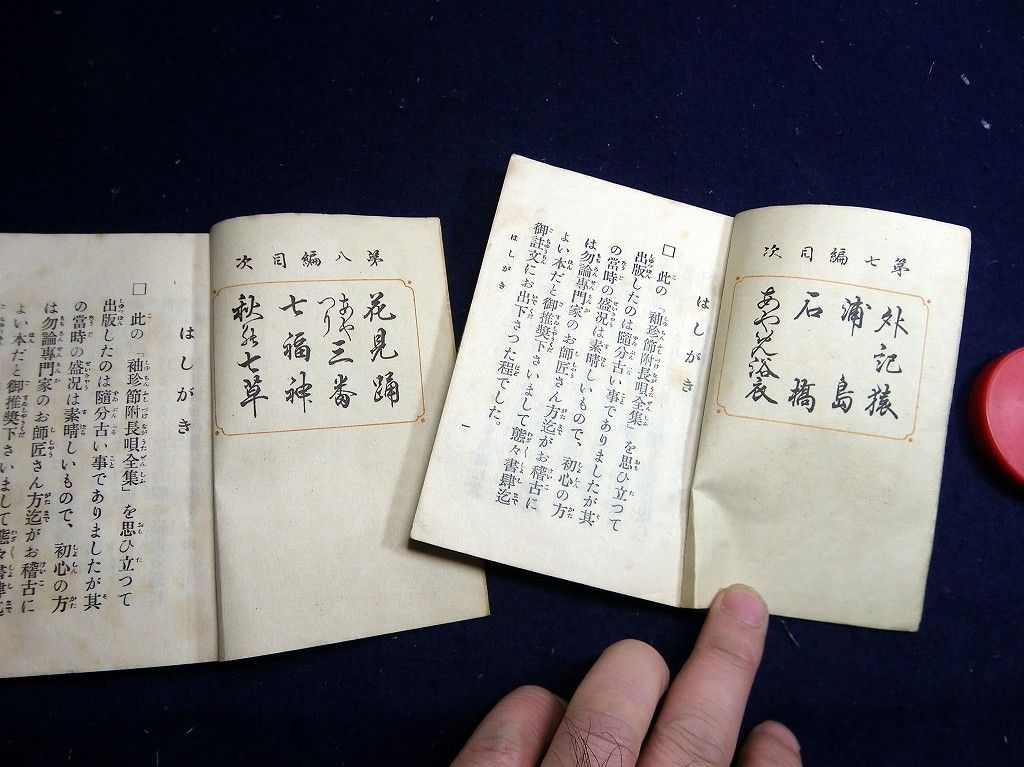 第七編目次
外記猿
浦島
石橋
あやめ浴衣
はしがき
□ 此の「袖珍節附長唄全集」を思ひ立つて
出版したのは隨分古い事でありましたが其
の當時の盛況は素晴しいもので、初心の方
は勿論專門家のお師匠さん方迄がお稽古に
よい本だと御推奬下さいまして態々書肆迄
御註文にお出下さつた程でした。
はしがき 一
第八編目次
花見踊
あやつり三番
七福神
秋の七草
はしがき
□ 此の「袖珍節附長唄全集」を思ひ立つて
出版したのは隨分古い事でありましたが其
の當時の盛況は素晴しいもので、初心の方
は勿論專門家のお師匠さん方迄がお稽古に
よい本だと御推奬下さいまして態々書肆迄